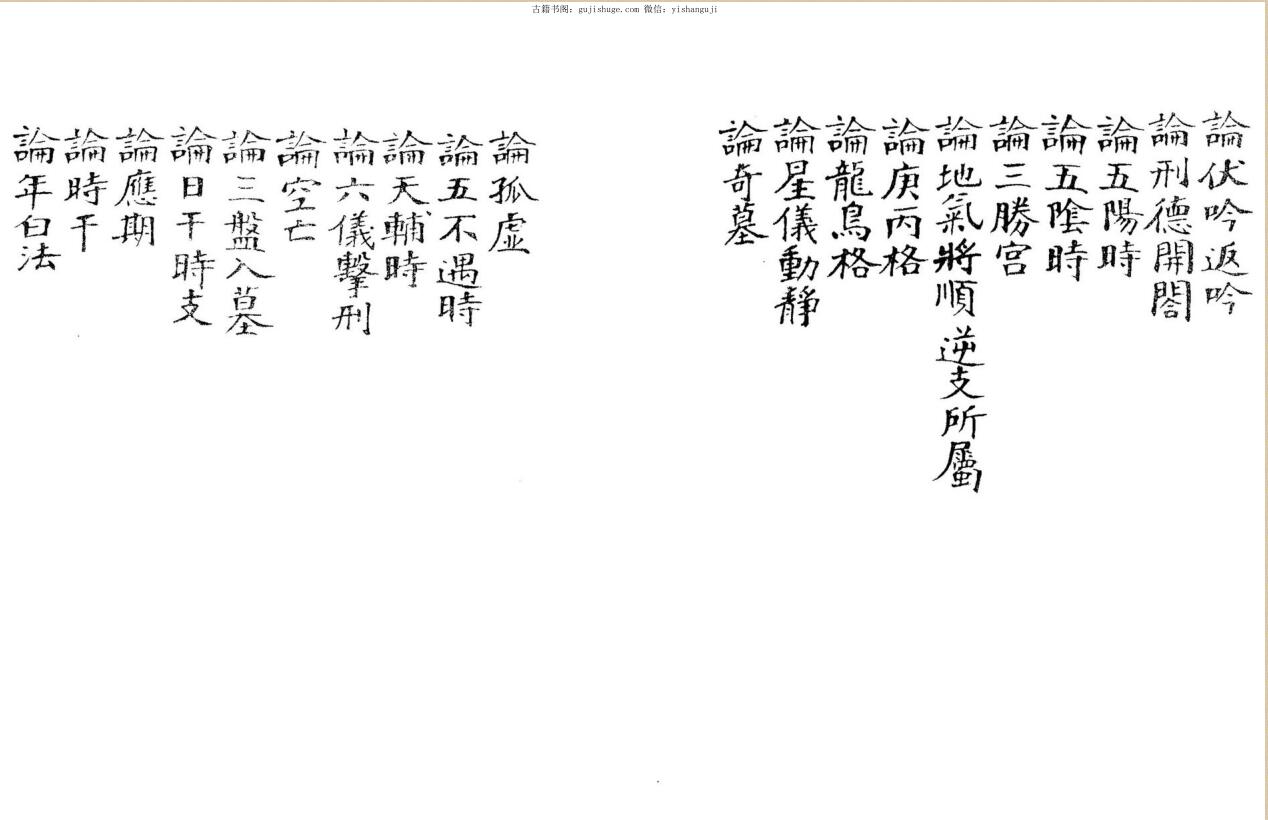 古籍书阁：gujishuge.com 微信：yishanguji
論伏吟返吟
論刑德開閤
論五陽時
論五陰時
論三勝宮
論地氣將順逆支所屬
論庚丙格
論龍鳥格
論星儀動靜
論奇墓
論孤虛
論五不遇時
論天輔時
論六儀擊刑
論空亡
論三盤入墓
論日干時支
論應期
論時干
論年白法